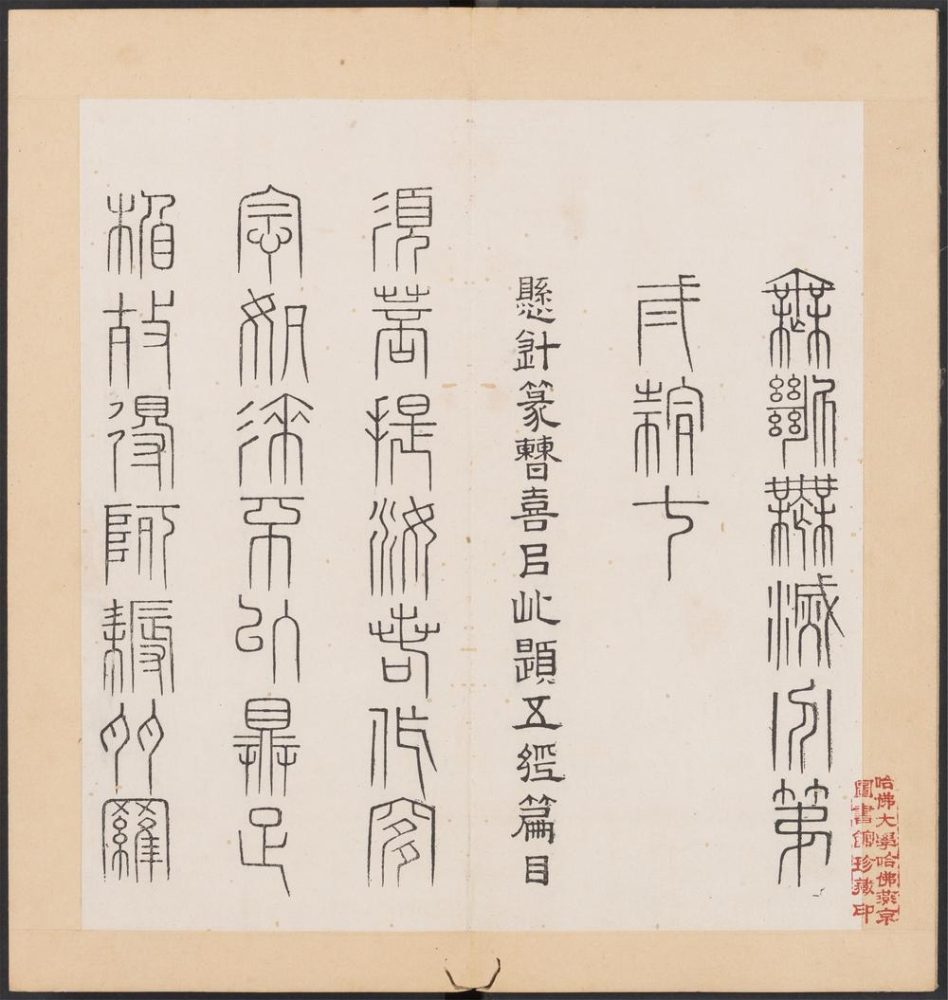 無斷無滅分第
七
懸針篆曹喜㠯此題五經篇目
須菩提汝若作是
念如來不以具足
相故得阿耨多羅
哈佛大學哈佛燕京
圖書館珍藏印